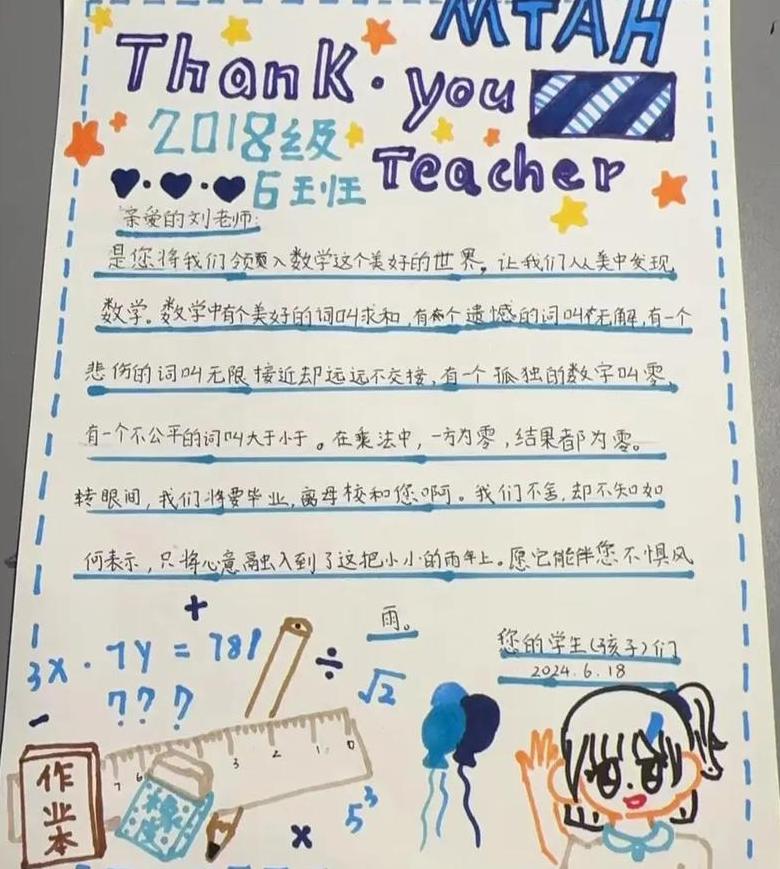 MTAH
Thank·you
2018级
Teacher
6班
亲爱的刘老师:
是您将我们领入数学这个美好的世界。让我们从美中发现
数学。数学中有个美好的词叫求和,有个遗憾的词叫无解,有一个
悲伤的词叫无限接近却远远不交接,有一个孤独的数字叫零,
有一个不公平的词叫大于小于。在乘法中,一方为零,结果都为零。
转眼间,我们将要毕业,离母校和您啊。我们不舍,却不知如
何表示,只将心意融入到了这把小小的雨伞上。愿它能伴您不惧风
雨。
您的学生(孩子)们
2024.6.18
+
3x · 7y = 781
÷
? ? ?
√2
-
3 2 1 0
7 6
作业本
橡皮
×
5³